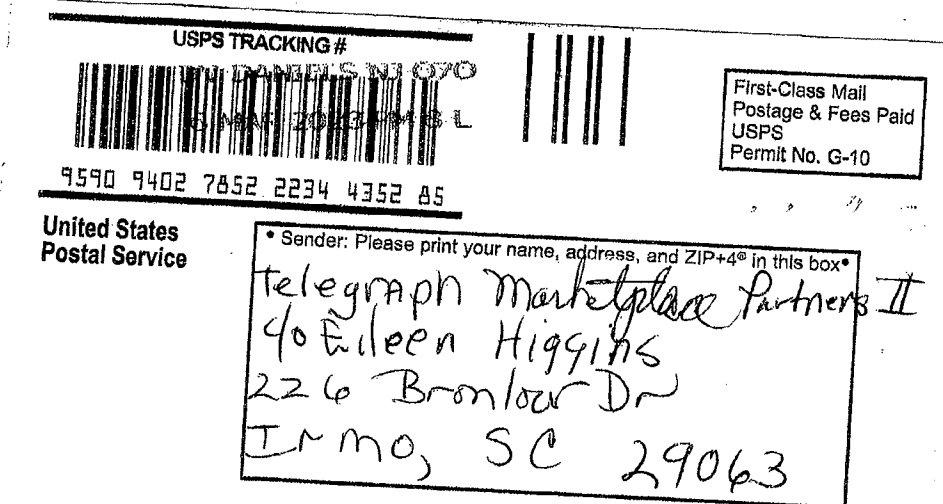 USPS TRACKING #
DANIELS NJ 070
MAR 2023 PM 6 L
9590 9402 7852 2234 4352 85
First-Class Mail
Postage & Fees Paid
USPS
Permit No. G-10
United States
Postal Service
• Sender: Please print your name, address, and ZIP+4® in this box•
Telegraph Marketplace Partners II
c/o Eileen Higgins
226 Dr
Irmo, SC 29063